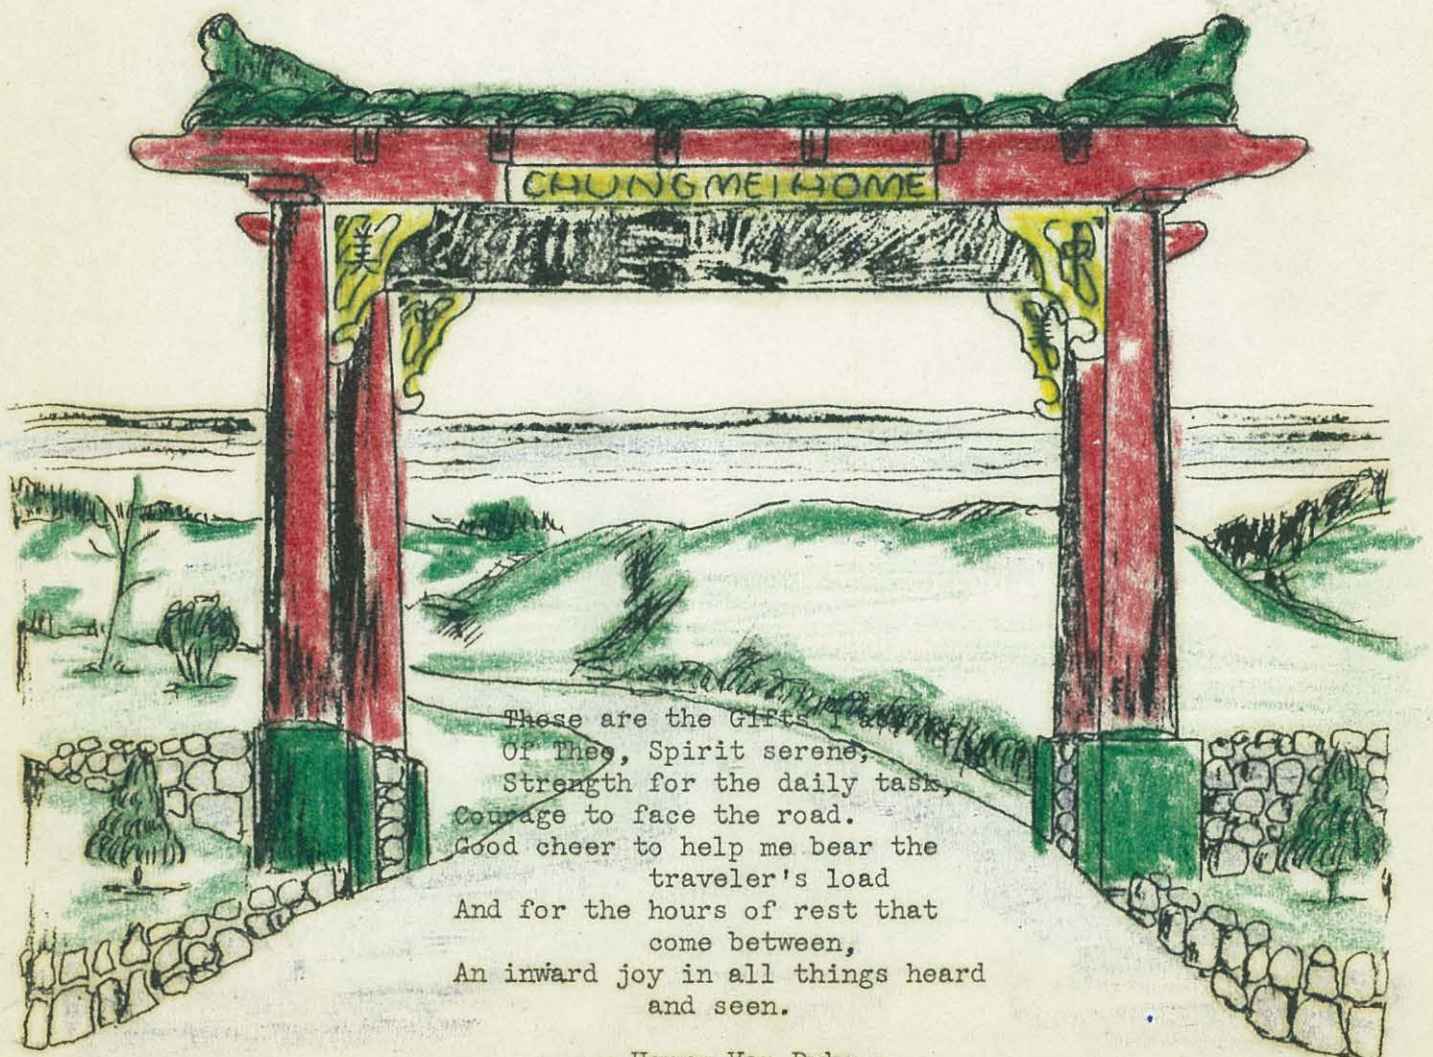 CHUNG MEI HOME
美 中
中 美
These are the Gifts I ask
Of Thee, Spirit serene;
Strength for the daily task,
Courage to face the road.
Good cheer to help me bear the
traveler's load
And for the hours of rest that
come between,
An inward joy in all things heard
and seen.
Van